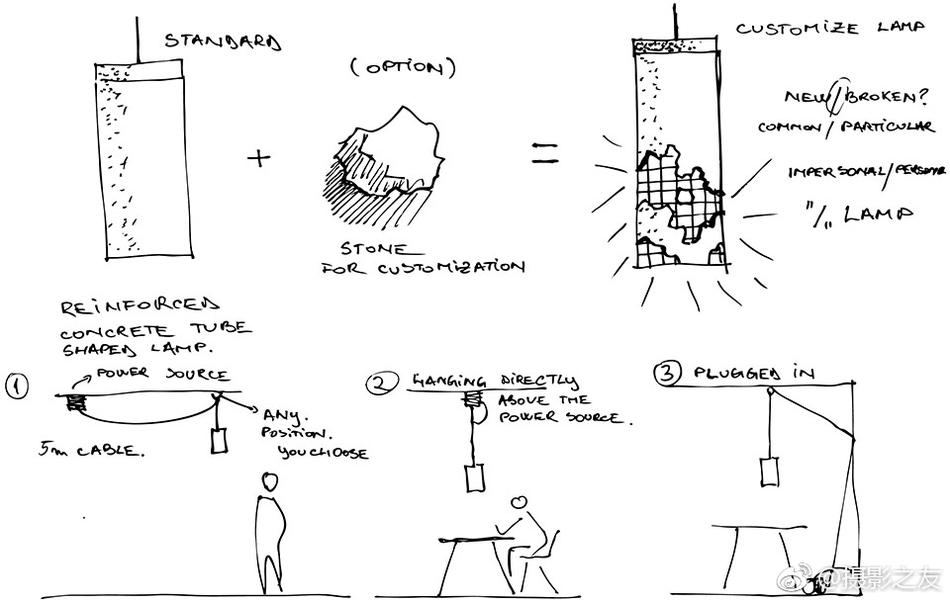 STANDARD
(OPTION)
CUSTOMIZE LAMP
NEW/BROKEN?
COMMON/PARTICULAR
IMPERSONAL/PERSONAL
"/„ LAMP
+
=
STONE
FOR CUSTOMIZATION
REINFORCED
CONCRETE TUBE
SHAPED LAMP.
1
POWER SOURCE
5m CABLE.
ANY.
POSITION.
YOU CHOOSE
2
HANGING DIRECTLY
ABOVE THE
POWER SOURCE.
3
PLUGGED IN
@摄影之友